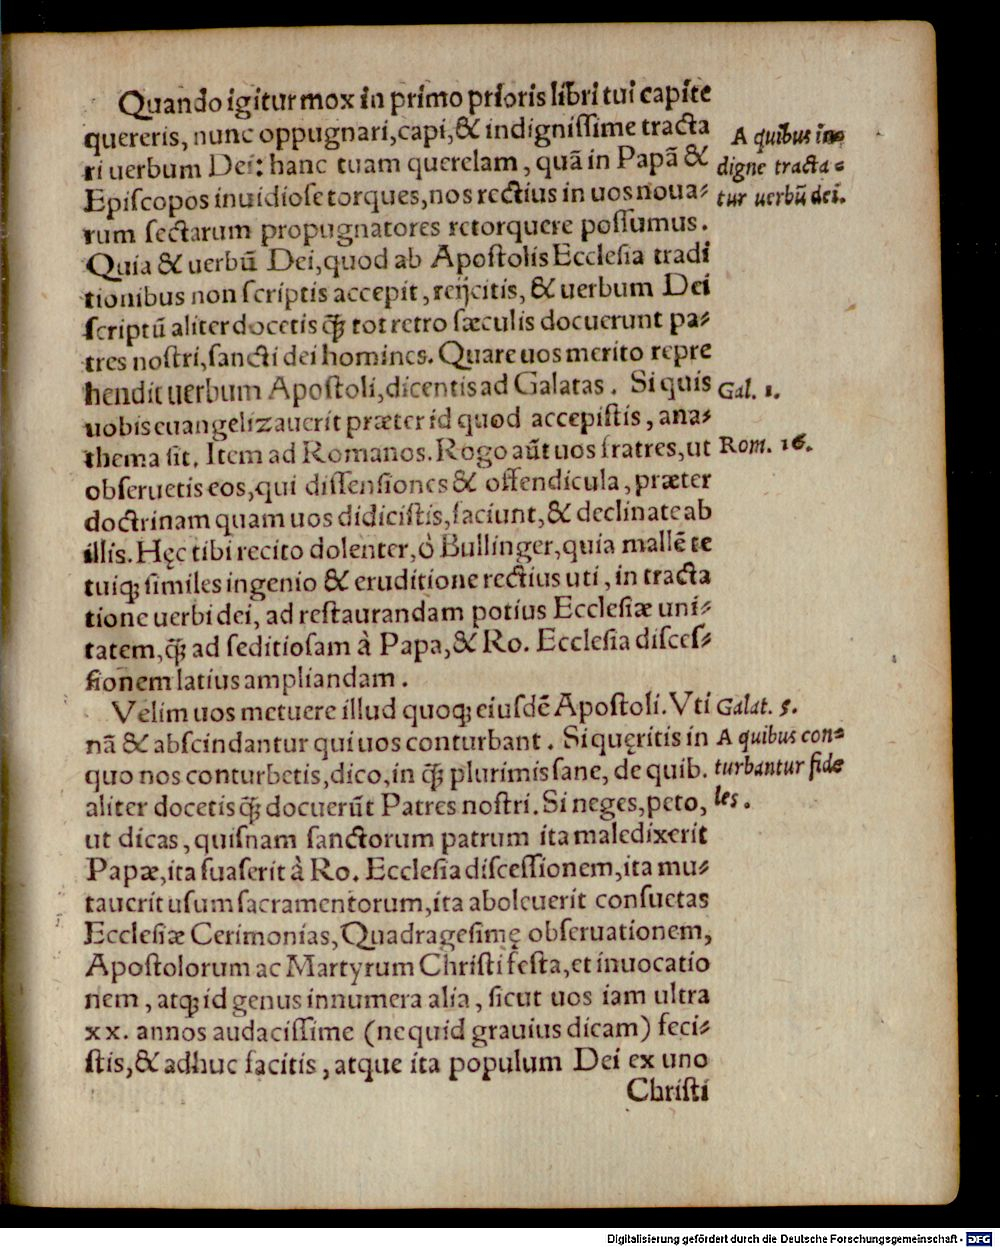 Quando igitur mox in primo prioris libri tui capite
quereris, nunc oppugnari, capi, & indignissime tracta
ri uerbum Dei: hanc tuam querelam, quã in Papã &
Episcopos inuidiose torques, nos rectius in uos noua⸗
rum sectarum propugnatores retorquere possumus.
Quia & uerbũ Dei, quod ab Apostolis Ecclesia tradi
tionibus non scriptis accepit, reijcitis, & uerbum Dei
scriptũ aliter docetis q̃ꝫ tot retro sæculis docuerunt pa⸗
tres nostri, sancti dei homines. Quare uos merito repre
hendit uerbum Apostoli, dicentis ad Galatas. Si quis
uobis euangelizauerit præter id quod accepistis, ana⸗
thema sit. Item ad Romanos. Rogo aũt uos fratres, ut
obseruetis eos, qui dissensiones & offendicula, præter
doctrinam quam uos didicistis, faciunt, & declinate ab
illis. Hęc tibi recito dolenter, ò Bullinger, quia mallẽ te
tuiqꝫ similes ingenio & eruditione rectius uti, in tracta
tione uerbi dei, ad restaurandam potius Ecclesiæ uni⸗
tatem, q̃ꝫ ad seditiosam à Papa, & Ro. Ecclesia disces⸗
sionem latius ampliandam.
Velim uos metuere illud quoqꝫ eiusdẽ Apostoli. Vti
nã & abscindantur qui uos conturbant. Si quęritis in
quo nos conturbetis, dico, in q̃ꝫ plurimis sane, de quib.
aliter docetis q̃ꝫ docuerũt Patres nostri. Si neges, peto,
ut dicas, quisnam sanctorum patrum ita maledixerit
Papæ, ita suaserit à Ro. Ecclesia discessionem, ita mu⸗
tauerit usum sacramentorum, ita aboleuerit consuetas
Ecclesiæ Cerimonias, Quadragesimę obseruationem,
Apostolorum ac Martyrum Christi festa, et inuocatio
nem, atqꝫ id genus innumera alia, sicut uos iam ultra
xx. annos audacissime (ne quid grauius dicam) feci⸗
stis, & adhuc facitis, atque ita populum Dei ex uno
Christi
A quibus in⸗
digne tracta⸗
tur uerbũ dei.
Gal. 1.
Rom. 16.
Galat. 5.
A quibus con⸗
turbantur fide
les.
Digitalisierung gefördert durch die Deutsche Forschungsgemeinschaft - DFG